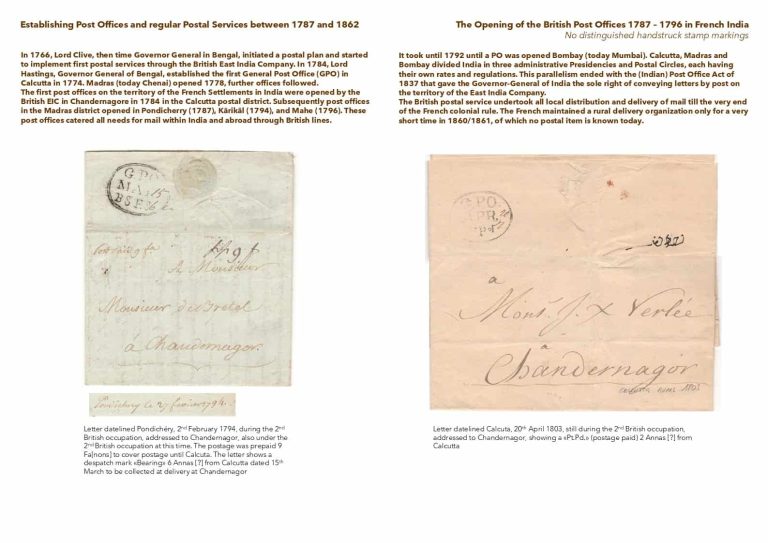 Establishing Post Offices and regular Postal Services between 1787 and 1862
In 1766, Lord Clive, then time Governor General in Bengal, initiated a postal plan and started
to implement first postal services through the British East India Company. In 1784, Lord
Hastings, Governor General of Bengal, established the first General Post Office (GPO) in
Calcutta in 1774. Madras (today Chenai) opened 1778, further offices followed.
The first post offices on the territory of the French Settlements in India were opened by the
British EIC in Chandernagore in 1784 in the Calcutta postal district. Subsequently post offices
in the Madras district opened in Pondicherry (1787), Kârikâl (1794), and Mahe (1796). These
post offices catered all needs for mail within India and abroad through British lines.
G.PO
MA 15
BSE 6
Post Paid 9 fa
A Monsieur
Monsieur
à Chandernagor.
Letter datelined Pondichéry, 2nd February 1794, during the 2nd
British occupation, addressed to Chandernagor, also under the
2nd British occupation at this time. The postage was prepaid 9
Fa[nons] to cover postage until Calcuta. The letter shows a
despatch mark «Bearing» 6 Annas [?] from Calcutta dated 15th
March to be collected at delivery at Chandernagor
The Opening of the British Post Offices 1787 – 1796 in French India
No distinguished handstruck stamp markings
It took until 1792 until a PO was opened Bombay (today Mumbai). Calcutta, Madras and
Bombay divided India in three administrative Presidencies and Postal Circles, each having
their own rates and regulations. This parallelism ended with the (Indian) Post Office Act of
1837 that gave the Governor-General of India the sole right of conveying letters by post on
the territory of the East India Company.
The British postal service undertook all local distribution and delivery of mail till the very end
of the French colonial rule. The French maintained a rural delivery organization only for a very
short time in 1860/1861, of which no postal item is known today.
G.PO.
APR.
a
Mons. J. X Verlée
à
Chandernagor
Letter datelined Calcuta, 20th April 1803, still during the 2nd British occupation,
addressed to Chandernagor, showing a «Pt.Pd.» (postage paid) 2 Annas [?] from
Calcutta